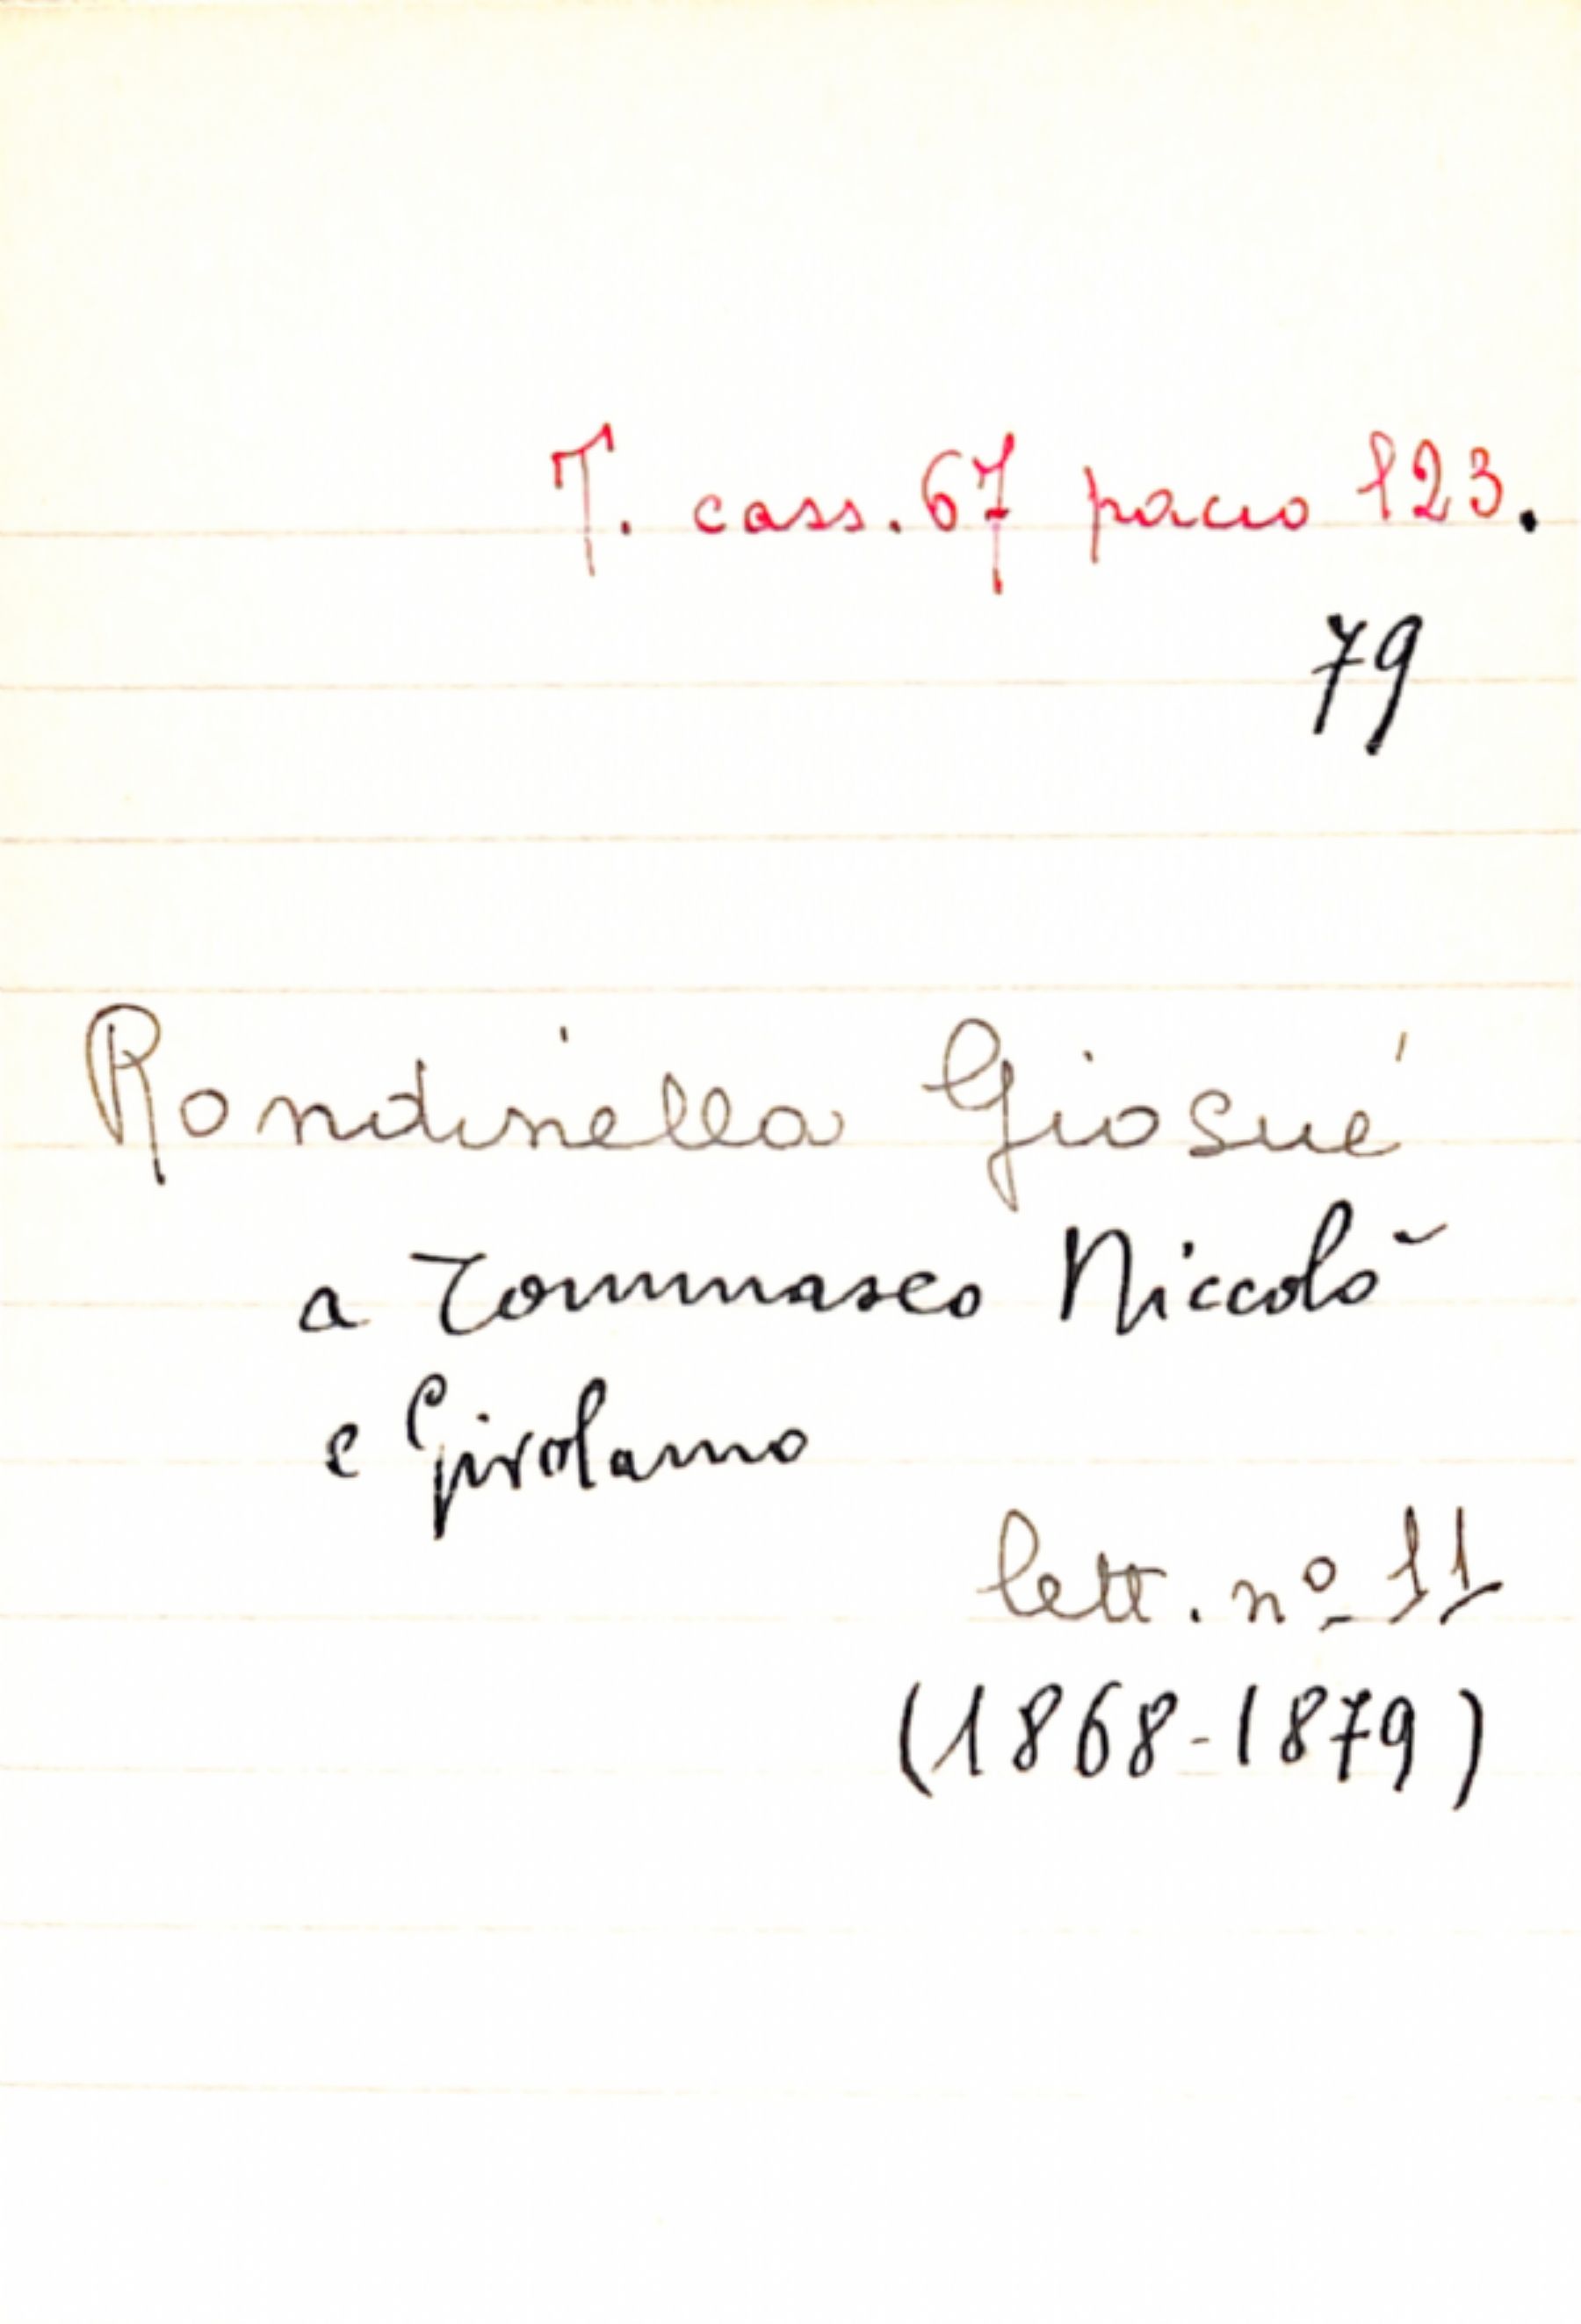 T. cass. 67 pacco 123.
79
Rondinella Giosué
a Tommaseo Niccolò
e Girolamo
lett. nº 11
(1868-1879)